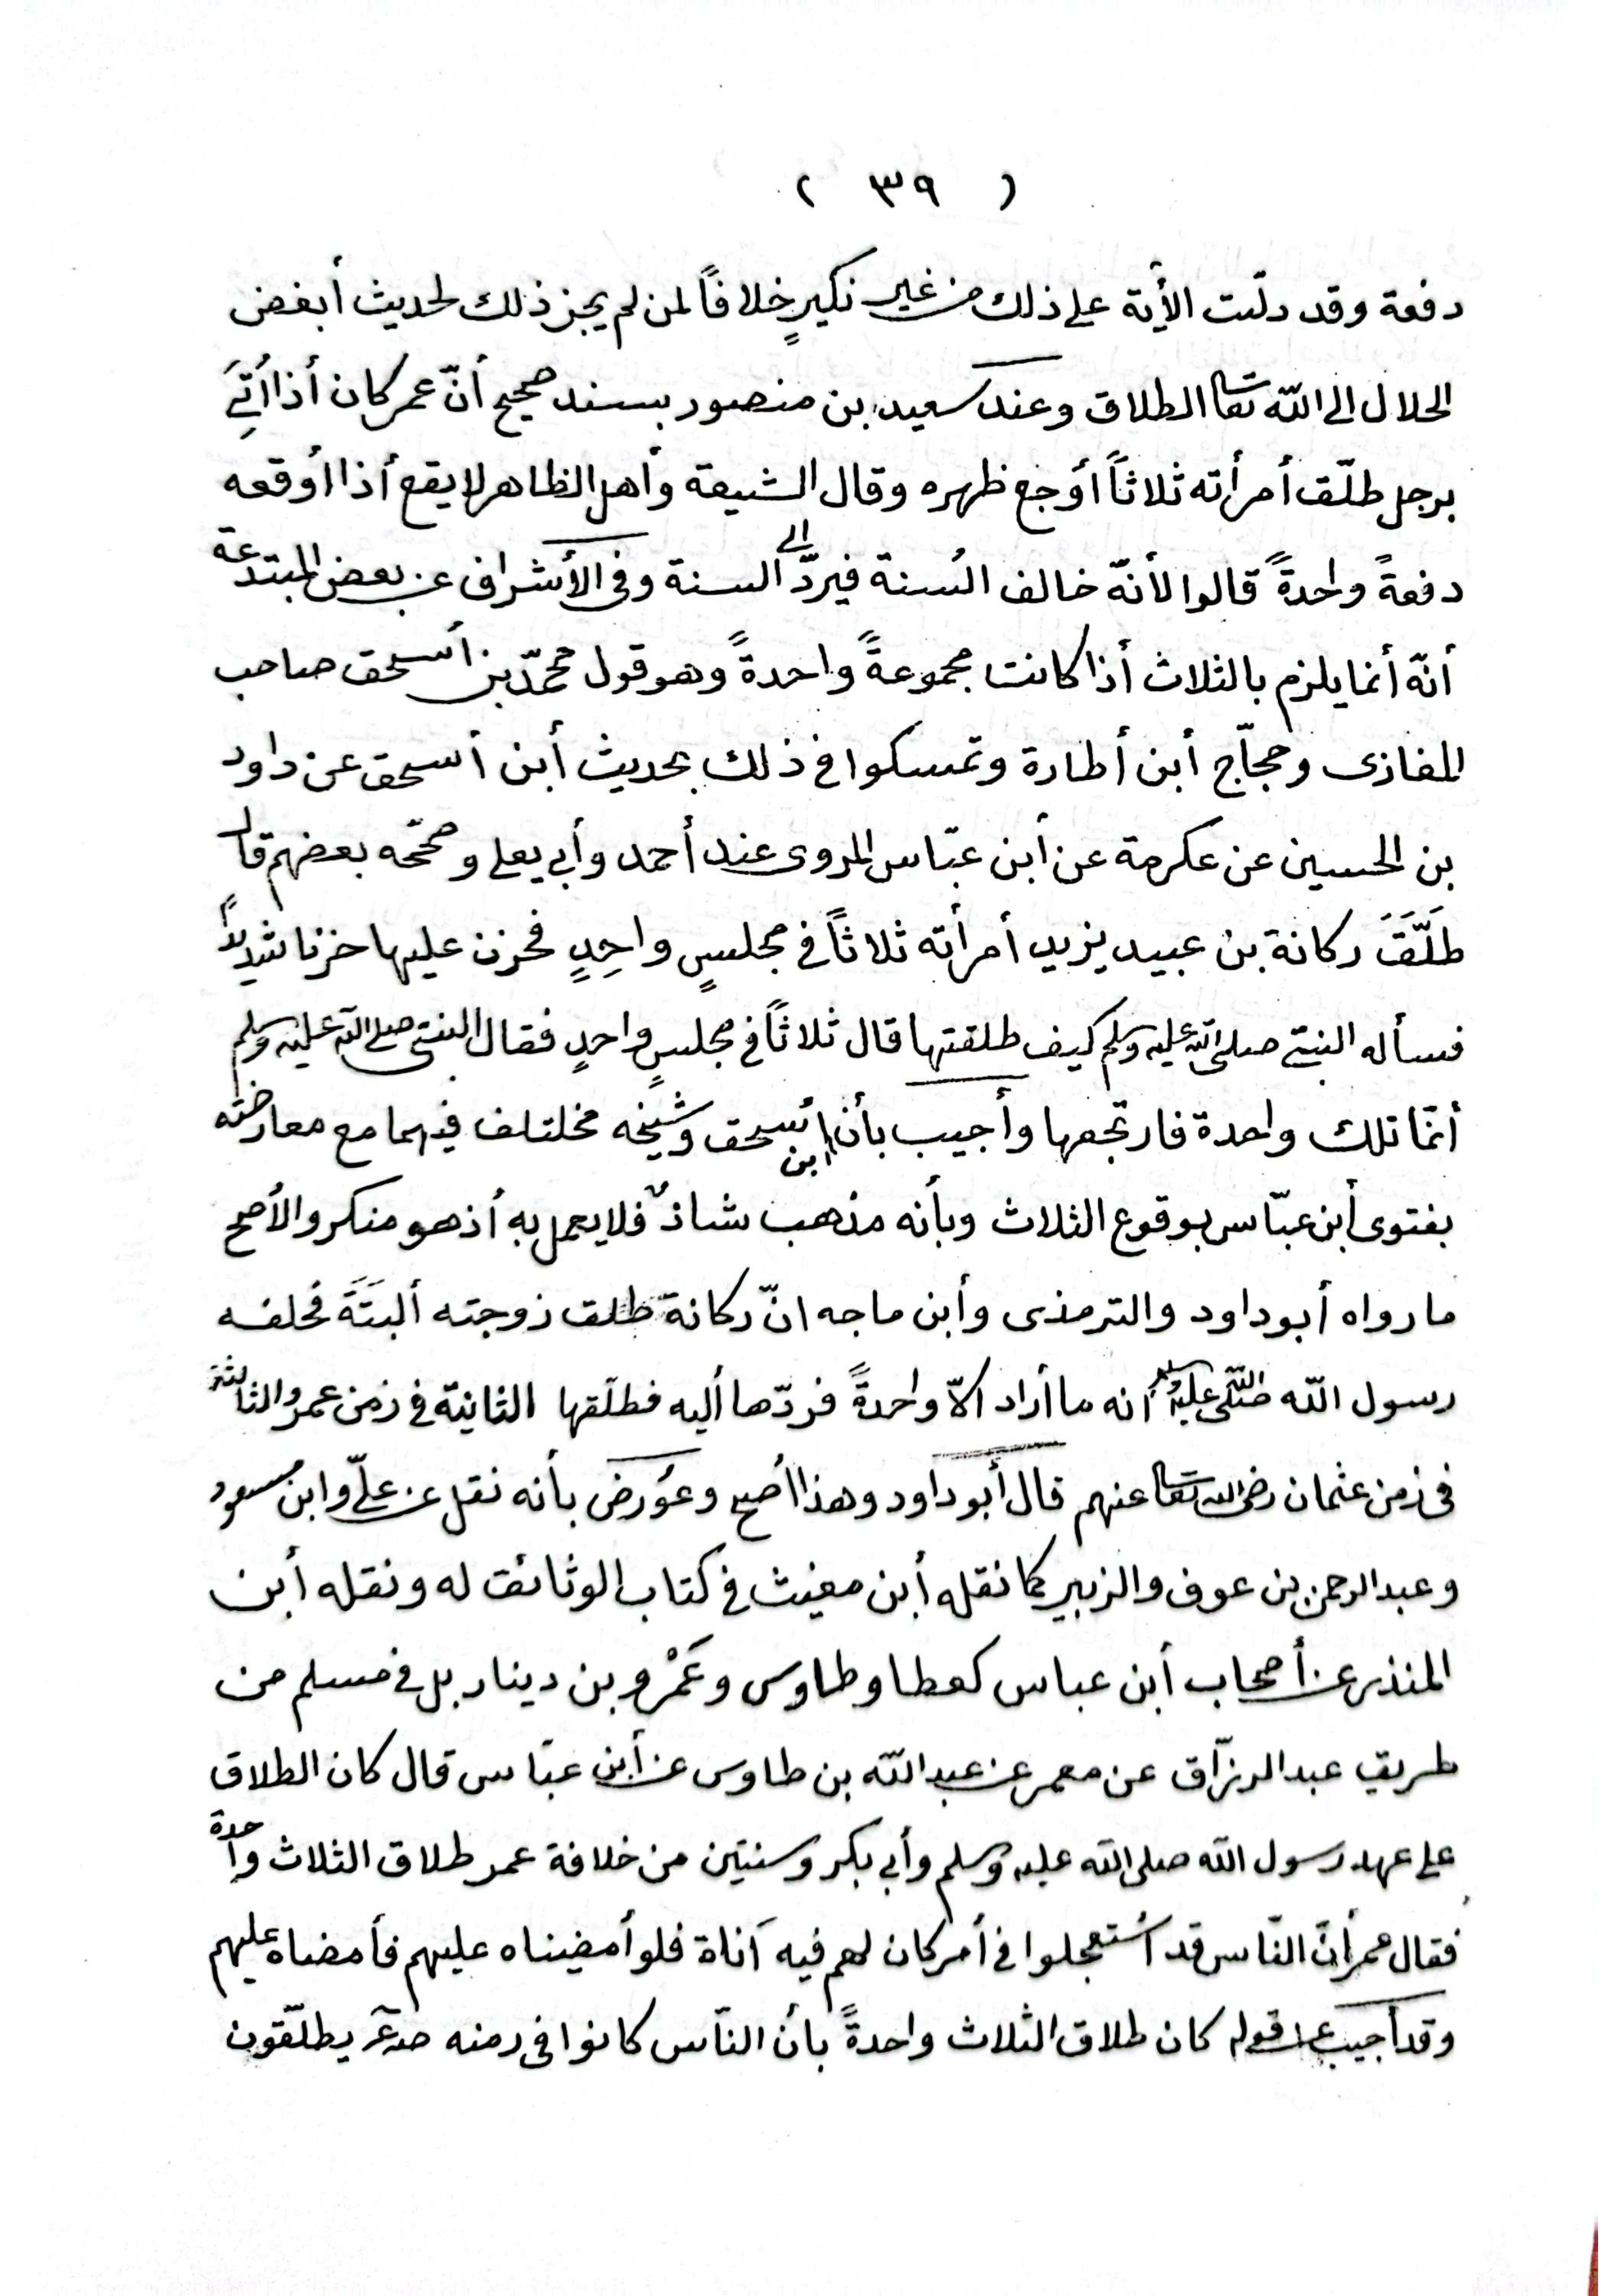 ( ٣٩ )
دفعة وقد دلّت الأية على ذلك من غير نكيرٍ خلافاً لمن لم يجز ذلك لحديث أبغض
الحلال الى الله تعا الطلاق وعند سعيد بن منصور بسند صحيح أنّ عمر كان أذا أُتِيَ
برجل طلّق أمرأته ثلاثاً أوجع ظهره وقال الشيعة وأهل الظاهر لا يقع أذا أوقعه
دفعةً واحدةً قالوا لأنّه خالف السُنة فيردّ الى السنة وفى الأشراف عن بعض المبتدعة
أنّه أنما يلزم بالثلاث أذا كانت مجموعةً واحدةً وهو قول محمّد بن أسحق صاحب
المغازى وحجّاج أبن أطارة وتمسكوا فى ذلك بحديث أبن أسحق عن داود
بن الحسين عن عكرمة عن أبن عبّاس المروى عند أحمد وأبي يعلى وصحّحه بعضهم قال
طَلَّقَ ركانة بن عبيد يزيد أمرأته ثلاثاً فى مجلسٍ واحِدٍ فحزن عليها حزنا شديداً
فسأله النبيّ صلى الله عليه وسلم كيف طلقتها قال ثلاثاً فى مجلسٍ واحدٍ فقال النبيّ صلى الله عليه وسلم
أنمّا تلك واحدة فارتجعها وأجيب بأن ابن أسحق وشيخه مختلف فيهما مع معارضته
بفتوى أبن عبّاس بوقوع الثلاث وبأنه مذهب شاذٌ فلا يعمل به أذ هو منكر والأصح
ما رواه أبو داود والترمذى وأبن ماجه انّ ركانة طلق زوجته ألبتَةَ فحلفه
رسول الله صلى الله عليه وسلم انه ما أراد الاّ واحدةً فردّها أليه فطلّقها الثانية فى زمن عمر والثالثة
فى زمن عثمان رضى الله تعا عنهم قال أبو داود وهذا أصح وعورض بأنه نقل عن عليّ وابن مسعود
وعبد الرحمن بن عوف والزبير كما نقله أبن مغيث فى كتاب الوثائق له ونقله أبن
المنذر عن أصحاب أبن عباس كعطا وطاوس وعَمْرو بن دينار بل فى مسلم من
طريق عبد الرزّاق عن معمر عن عبد الله بن طاوس عن أبن عبّاس قال كان الطلاق
على عهد رسول الله صلى الله عليه وسلم وأبي بكر وسنتين من خلافة عمر طلاق الثلاث واحدة
فقال عمر أنّ النّاس قد أستعجلوا فى أمر كان لهم فيه آناة فلو أمضيناه عليهم فأمضاه عليهم
وقد أجيب عن قوله كان طلاق الثلاث واحدةً بأن النّاس كانوا فى زمنه يطلّقون